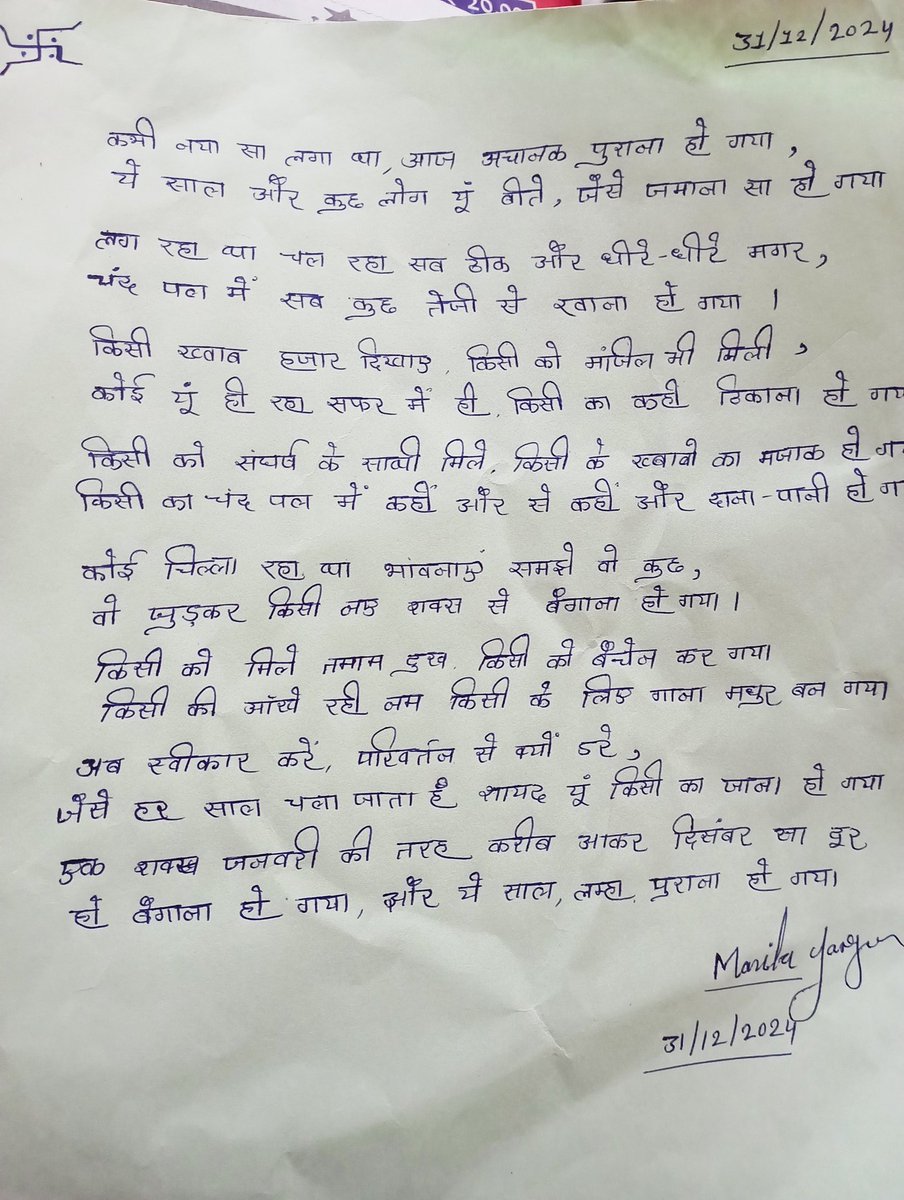 20.00
31/12/2024
कभी नया सा लगा था, आज अचानक पुराना हो गया,
ये साल और कुछ लोग यूं बीते, जैसे जमाना सा हो गया
लग रहा था चल रहा सब ठीक और धीरे-धीरे मगर,
चंद पल में सब कुछ तेजी से रवाना हो गया ।
किसी ख्वाब हजार दिखाए, किसी को मंजिल भी मिली,
कोई यूं ही रहा सफर में ही, किसी का कही ठिकाना हो गय
किसी को संघर्ष के साथी मिले, किसी के ख्वाबो का मजाक हो ग
किसी का चंद पल में कहीं और से कहीं और दाना-पानी हो ग
कोई चिल्ला रहा था भावनाएं समझे वो कुछ,
वो जुड़कर किसी नए शक्स से बैगाना हो गया ।
किसी को मिले तमाम दुख, किसी को बैचेन कर गया
किसी की आँखे रही नम किसी के लिए गाना मधुर बन गया
अब स्वीकार करें, परिवर्तन से क्यों डरे,
जैसे हर साल चला जाता है शायद यूं किसी का जाना हो गया
एक शक्स जनवरी की तरह करीब आकर दिसंबर सा दूर
हो बैगाना हो गया, और ये साल, लम्हा पुराना हो गया।
31/12/2024